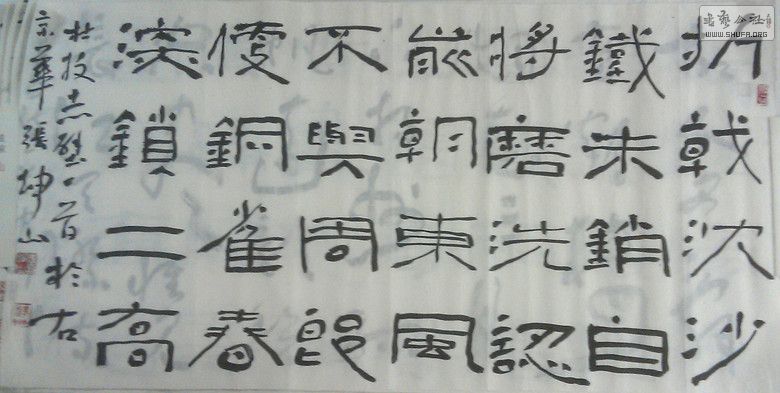 折戟沈沙
鐵未銷自
將磨洗認
前朝東風
不與周郎
便銅雀春
深鎖二喬
杜牧赤壁一首於古
京華張坤山
书艺公社
WWW.SHUFA.ORG